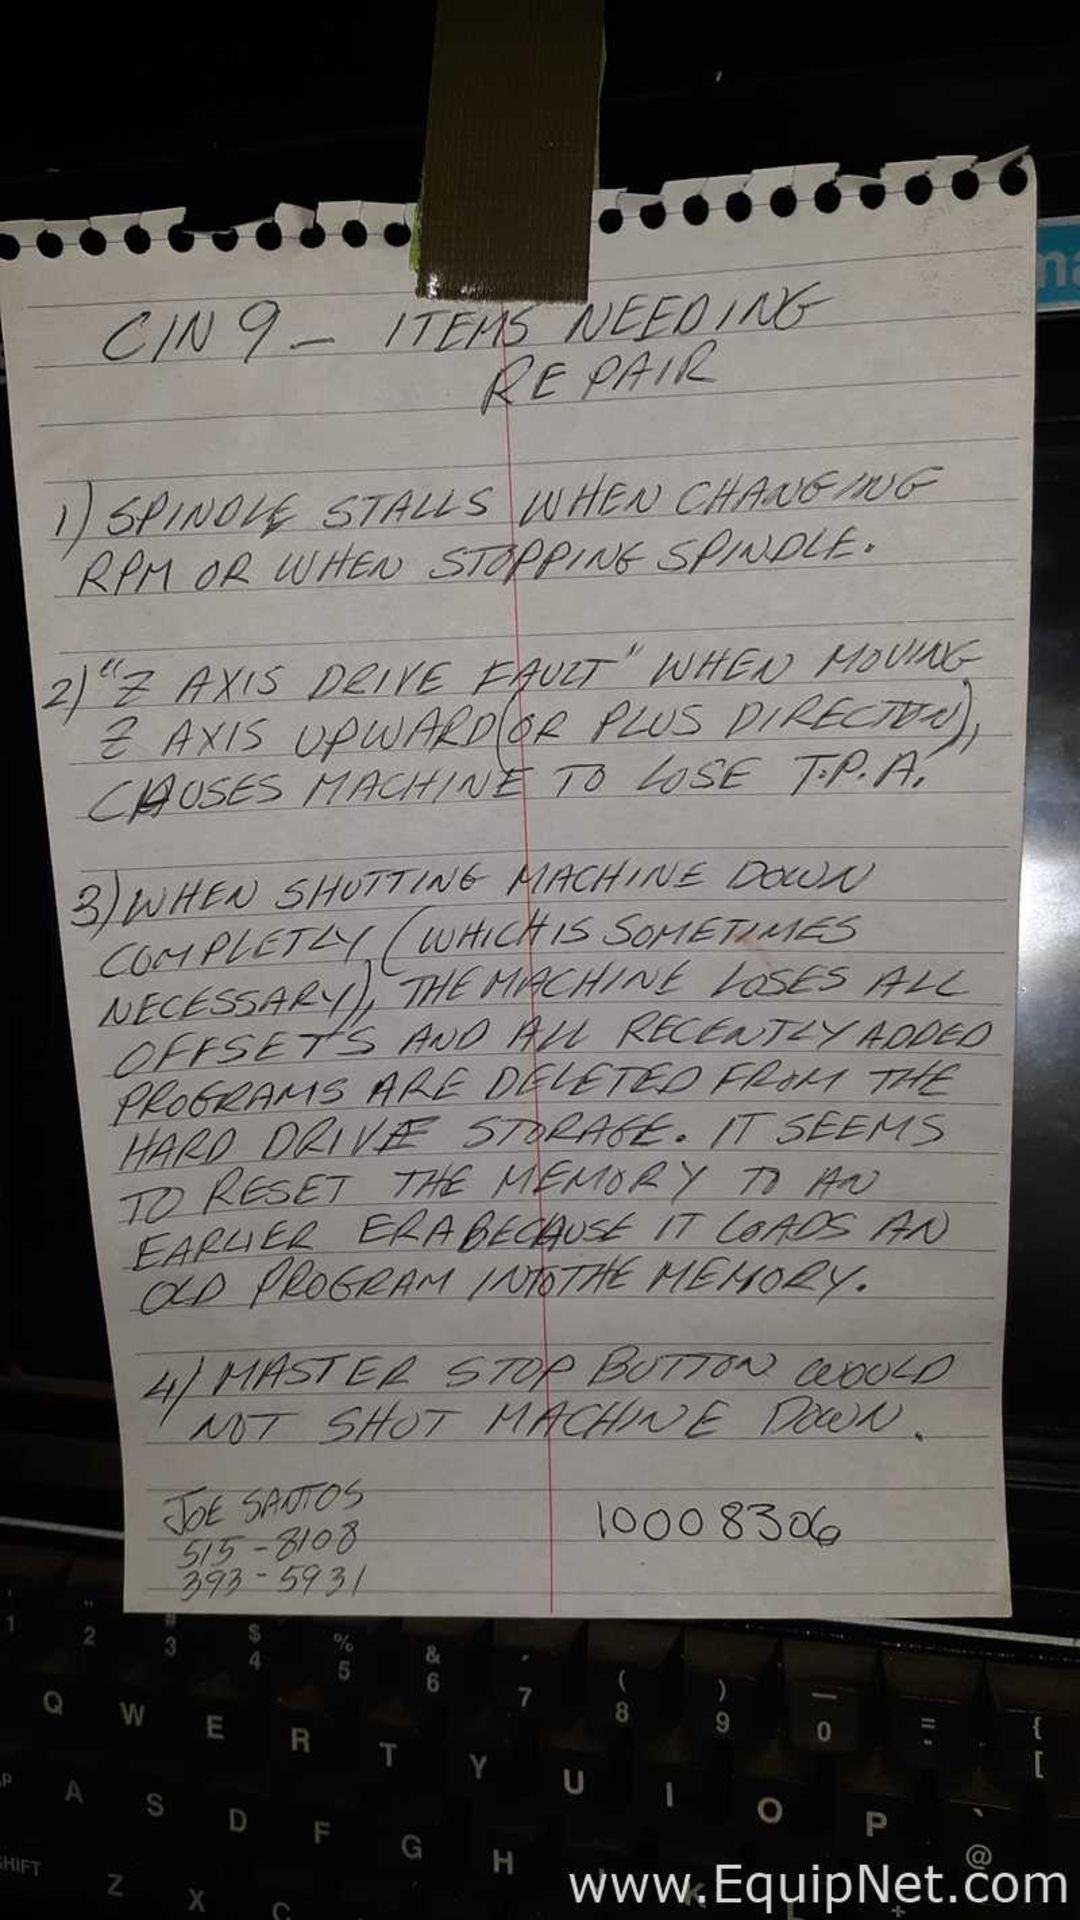 CIN 9 - ITEMS NEEDING
REPAIR
1) SPINDLE STALLS WHEN CHANGING
RPM OR WHEN STOPPING SPINDLE.
2) "Z AXIS DRIVE FAULT" WHEN MOVING
Z AXIS UPWARD (OR PLUS DIRECTION),
CAUSES MACHINE TO LOSE T.P.A.
3) WHEN SHUTTING MACHINE DOWN
COMPLETLY (WHICH IS SOMETIMES
NECESSARY), THE MACHINE LOSES ALL
OFFSETS AND ALL RECENTLY ADDED
PROGRAMS ARE DELETED FROM THE
HARD DRIVE STORAGE. IT SEEMS
TO RESET THE MEMORY TO AN
EARLIER ERA BECAUSE IT LOADS AN
OLD PROGRAM INTO THE MEMORY.
4) MASTER STOP BUTTON WOULD
NOT SHUT MACHINE DOWN.
JOE SANTOS 10008306
515-8108
393-5931
1 " 2 # 3 $ 4 % 5 & 6 ' 7 ( 8 ) 9 — 0 = - { [
Q W E R T Y U I O P ` @
A S D F G H K L +
SHIFT Z X C
www.EquipNet.com